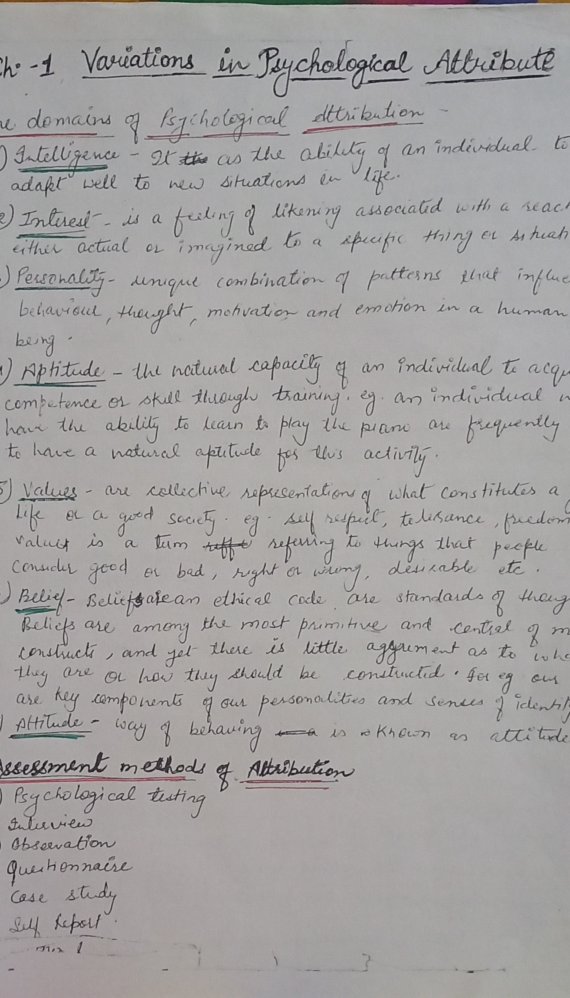 Ch:-1 Variations in Psychological Attribute
he domains of Psychological Attribution -
) Intelligence - It is as the ability of an individual to
adapt well to new situations in life.
2) Interest - is a feeling of likening associated with a reac
either actual or imagined to a specific thing or situati
) Personality - unique combination of patterns that influe
behaviour, thought, motivation and emotion in a human
being.
) Aptitude - the natural capacity of an individual to acqu
competence or skill through training. eg. an individual w
have the ability to learn to play the piano are frequently
to have a natural aptitude for this activity.
5) Values - are collective representations of what constitutes a
life or a good society. eg - self respect, tolerance, freedom
values is a term referring to things that people
consider good or bad, right or wrong, desirable etc.
) Belief - Beliefs are an ethical code are standards of thoug
Beliefs are among the most primitive and central of m
constructs, and yet there is little aggrument as to whe
they are or how they should be constructed. for eg our
are key components of our personalities and senses of identity
) Attitude - way of behaving is known as attitude
Assessment methods of Attribution
) Psychological testing
Interview
Observation
Questionnaire
Case study
Self Report.